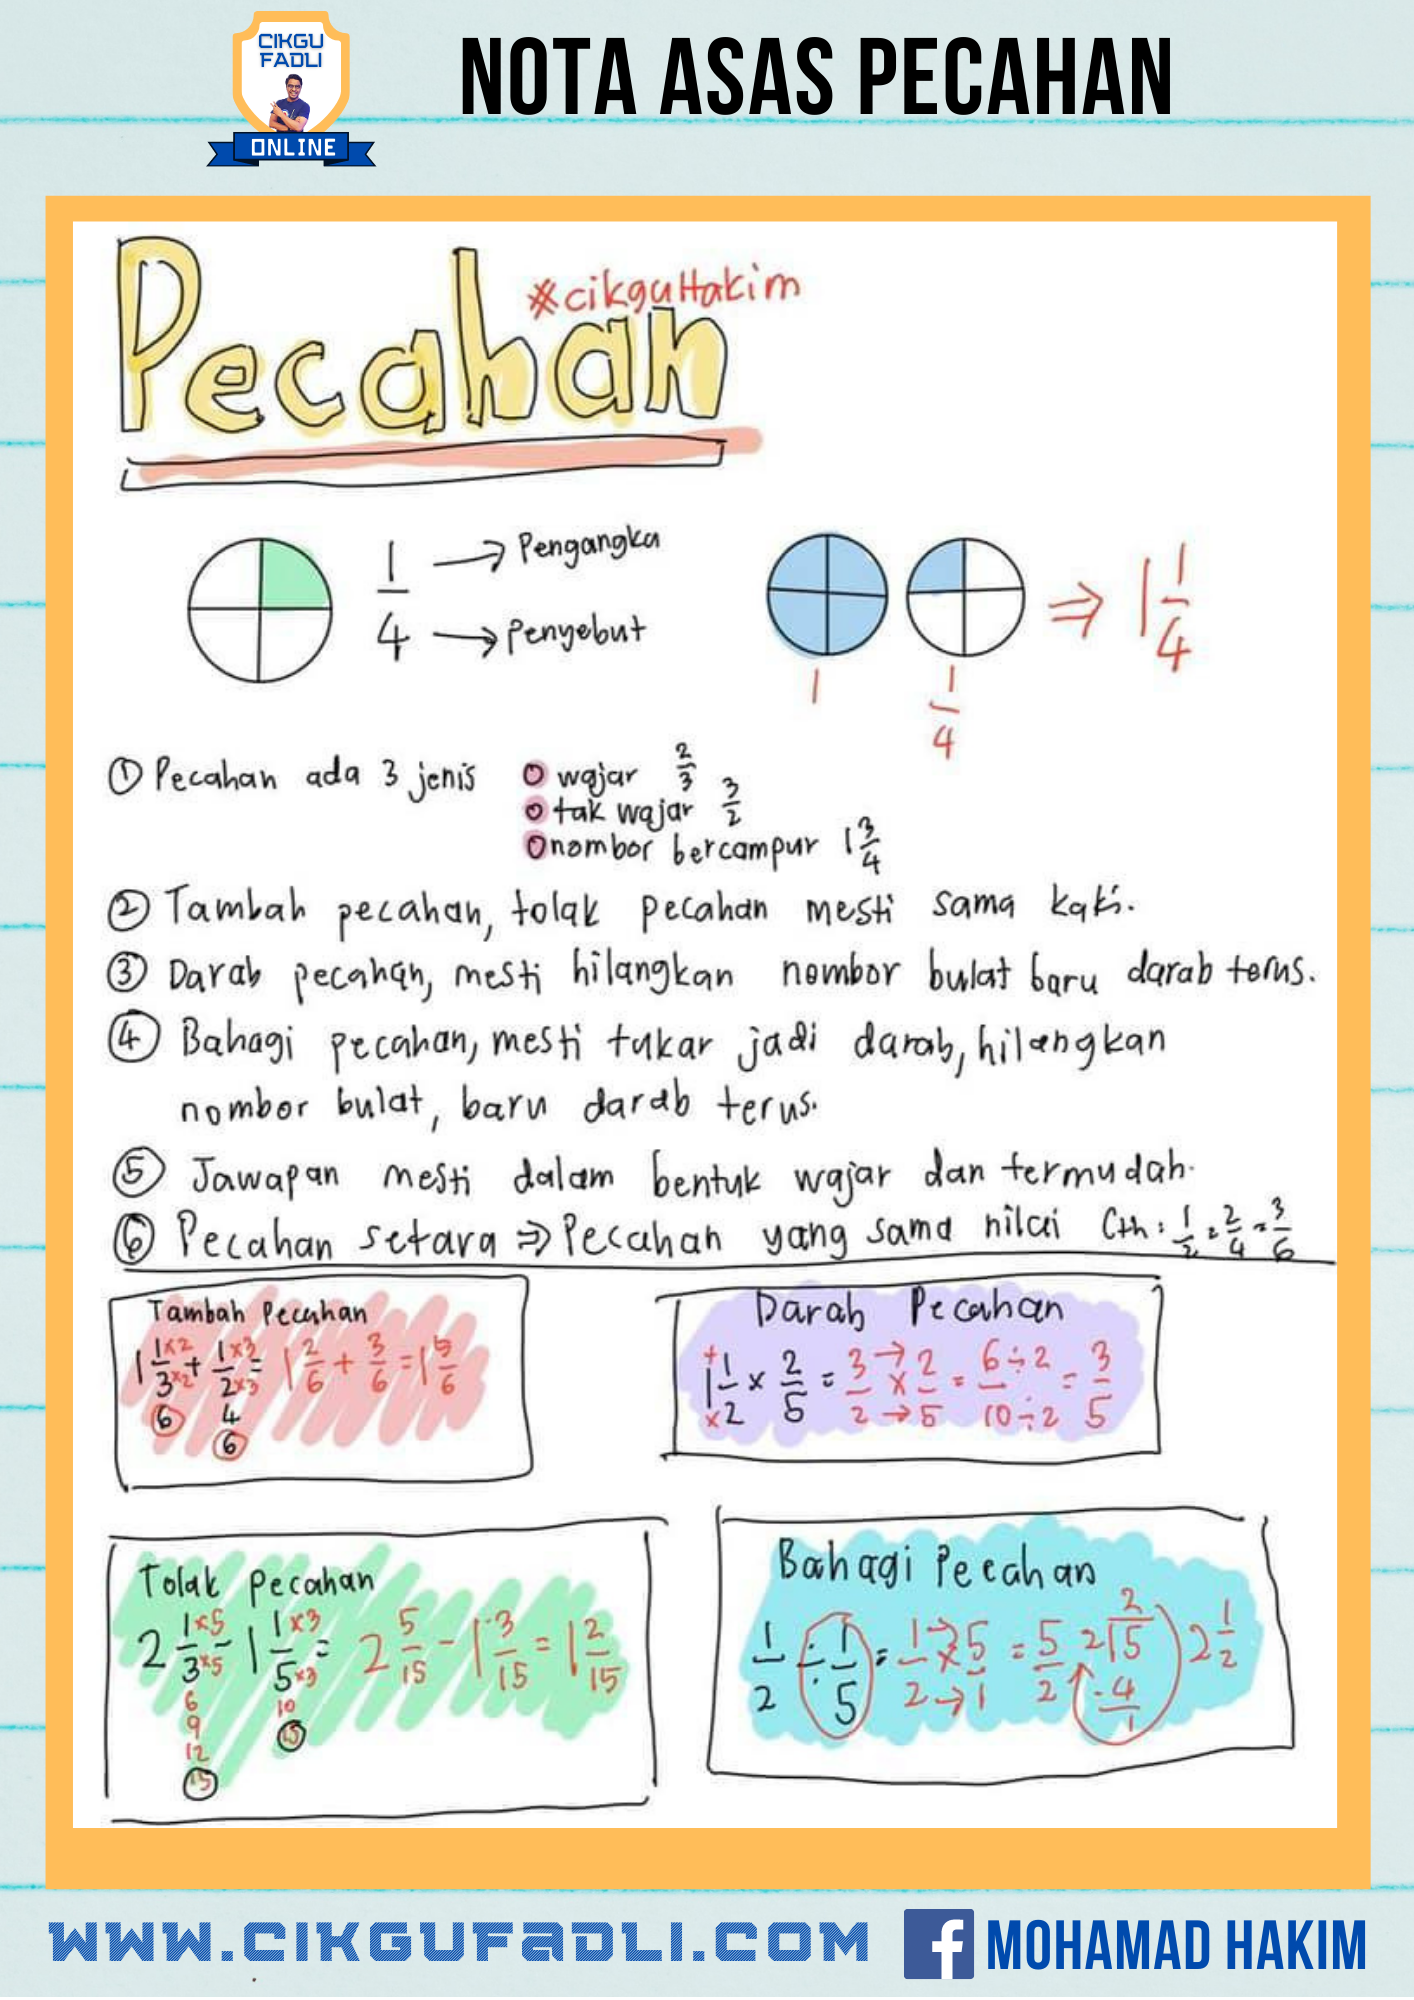 CIKGU
FADLI
ONLINE
NOTA ASAS PECAHAN
#cikguHakim
Pecahan
1/4 → Pengangka
→ Penyebut
1 1/4 ⇒ 1 1/4
① Pecahan ada 3 jenis
○ wajar 2/3
○ tak wajar 3/2
○ nombor bercampur 1 3/4
② Tambah pecahan, tolak pecahan mesti sama kaki.
③ Darab pecahan, mesti hilangkan nombor bulat baru darab terus.
④ Bahagi pecahan, mesti tukar jadi darab, hilangkan
nombor bulat, baru darab terus.
⑤ Jawapan mesti dalam bentuk wajar dan termudah.
⑥ Pecahan setara ⇒ Pecahan yang sama nilai Cth: 1/2 = 2/4 = 3/6
Tambah Pecahan
1 1×2/3×2 + 1×3/2×3 = 1 2/6 + 3/6 = 1 5/6
6 4
6
Darab Pecahan
+ 1 1/2 × 2/5 = 3/2 → × → 2/5 = 6÷2/10÷2 = 3/5
×
Tolak Pecahan
2 1×5/3×5 - 1 1×3/5×3 = 2 5/15 - 1 3/15 = 1 2/15
6 10
9 15
12
15
Bahagi Pecahan
1/2 ÷ 1/5 = 1/2 → × → 5/1 = 5/2 2
2√5 2 1/2
-4
1
WWW.CIKGUFADLI.COM
f MOHAMAD HAKIM